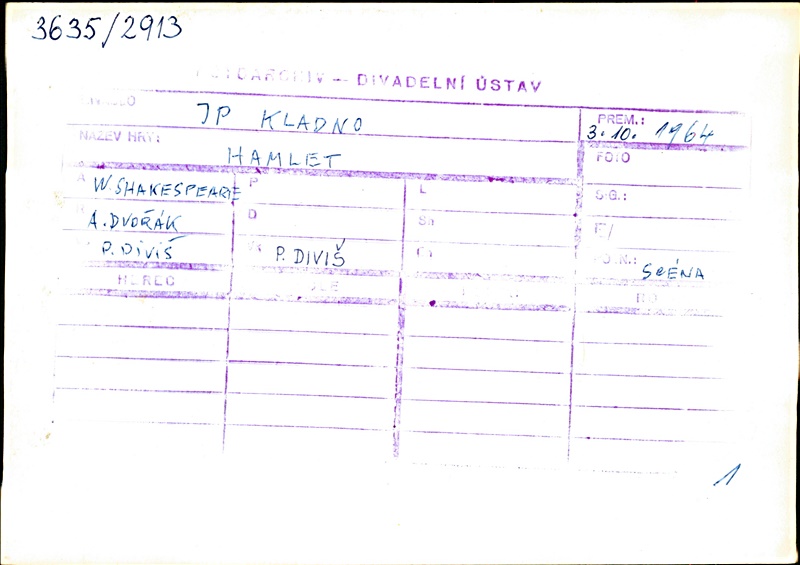 3635/2913
FOTOARCHIV — DIVADELNÍ ÚSTAV
DIVADLO JP KLADNO
PREM.:
3.10. 1964
NÁZEV HRY:
HAMLET
FOTO
A W. SHAKESPEARE P L
S.G.:
A. DVOŘÁK D Sn
E/
P. DIVIŠ P. DIVIŠ
SCÉNA
HEREC
1